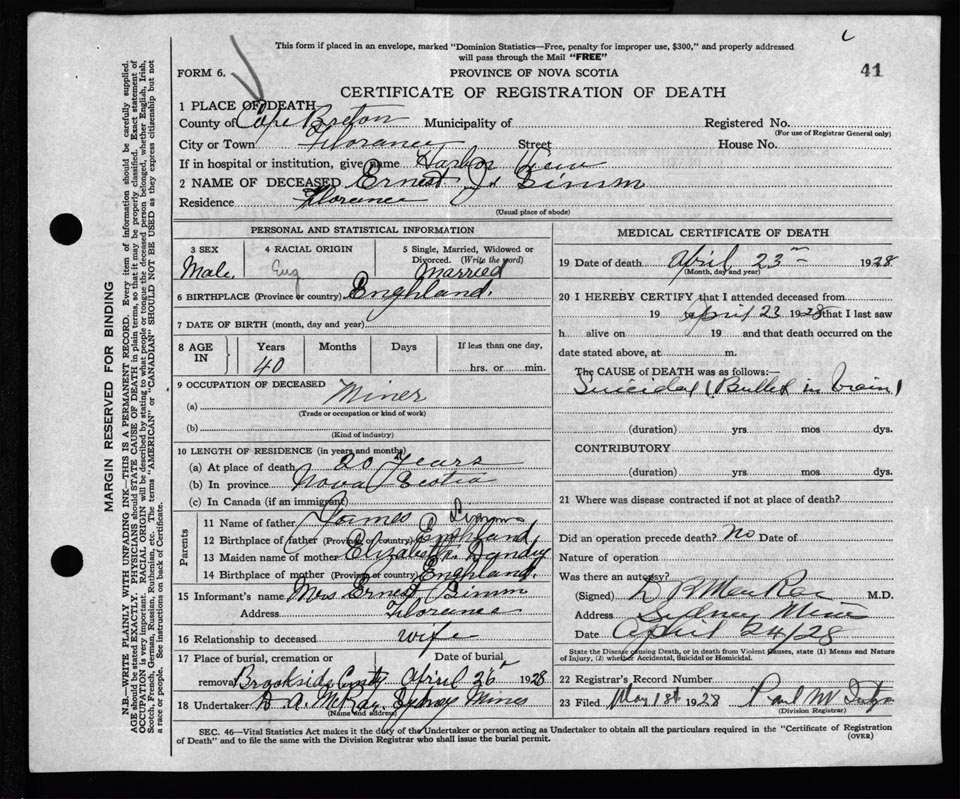 This form if placed in an envelope, marked "Dominion Statistics—Free, penalty for improper use, $300," and properly addressed
will pass through the Mail "FREE"
FORM 6.
PROVINCE OF NOVA SCOTIA
41
CERTIFICATE OF REGISTRATION OF DEATH
1 PLACE OF DEATH
County of Cape Breton Municipality of Registered No.
(For use of Registrar General only)
City or Town Florence Street House No.
If in hospital or institution, give name Harbor View
2 NAME OF DECEASED Ernest J. Simm
Residence Florence
(Usual place of abode)
PERSONAL AND STATISTICAL INFORMATION
3 SEX 4 RACIAL ORIGIN 5 Single, Married, Widowed or
Divorced. (Write the word)
Male. Eng Married
6 BIRTHPLACE (Province or country) Enghland.
7 DATE OF BIRTH (month, day and year)
8 AGE IN Years Months Days If less than one day,
40 hrs. or min.
9 OCCUPATION OF DECEASED
(a) Miner
(Trade or occupation or kind of work)
(b)
(Kind of industry)
10 LENGTH OF RESIDENCE (in years and months)
(a) At place of death 20 Years
(b) In province Nova Scotia
(c) In Canada (if an immigrant)
Parents
11 Name of father James Simms
12 Birthplace of father (Province or country) Enghland,
13 Maiden name of mother Elizabeth
14 Birthplace of mother (Province or country) Enghland.
15 Informant's name Mrs Ernest Simm
Address Florence
16 Relationship to deceased wife
17 Place of burial, cremation or Date of burial
removal Brookside April 26 1928
18 Undertaker Sydney Mines
(Name and address)
MEDICAL CERTIFICATE OF DEATH
19 Date of death April 23 1928
(Month, day and year)
20 I HEREBY CERTIFY that I attended deceased from
19 to April 23 1928 that I last saw
h alive on 19 and that death occurred on the
date stated above, at m.
The CAUSE of DEATH was as follows:—
Suicidal (Bullet in brain)
(duration) yrs mos dys.
CONTRIBUTORY
(duration) yrs mos dys.
21 Where was disease contracted if not at place of death?
Did an operation precede death? No Date of
Nature of operation
Was there an autopsy?
(Signed) M.D.
Address Sydney Mines
Date April 24/28
State the Disease causing Death, or in death from Violent Causes, state (1) Means and Nature
of Injury, (2) whether Accidental, Suicidal or Homicidal.
22 Registrar's Record Number
23 Filed May 1st 1928
(Division Registrar)
SEC. 46—Vital Statistics Act makes it the duty of the Undertaker or person acting as Undertaker to obtain all the particulars required in the "Certificate of Registration
of Death" and to file the same with the Division Registrar who shall issue the burial permit.
(OVER)
MARGIN RESERVED FOR BINDING
N.B.—WRITE PLAINLY WITH UNFADING INK—THIS IS A PERMANENT RECORD. Every item of information should be carefully supplied.
AGE should be stated EXACTLY. PHYSICIANS should STATE CAUSE OF DEATH in plain terms, so that it may be properly classified. Exact statement of
OCCUPATION is very important. RACIAL ORIGIN will be described by stating to what people or tongue the deceased person belonged, whether English, Irish,
Scotch, French, German, Russian, Ruthenian, etc. The terms "AMERICAN" or "CANADIAN" SHOULD NOT BE USED as they express citizenship but not
a race or people. See instructions on back of Certificate.